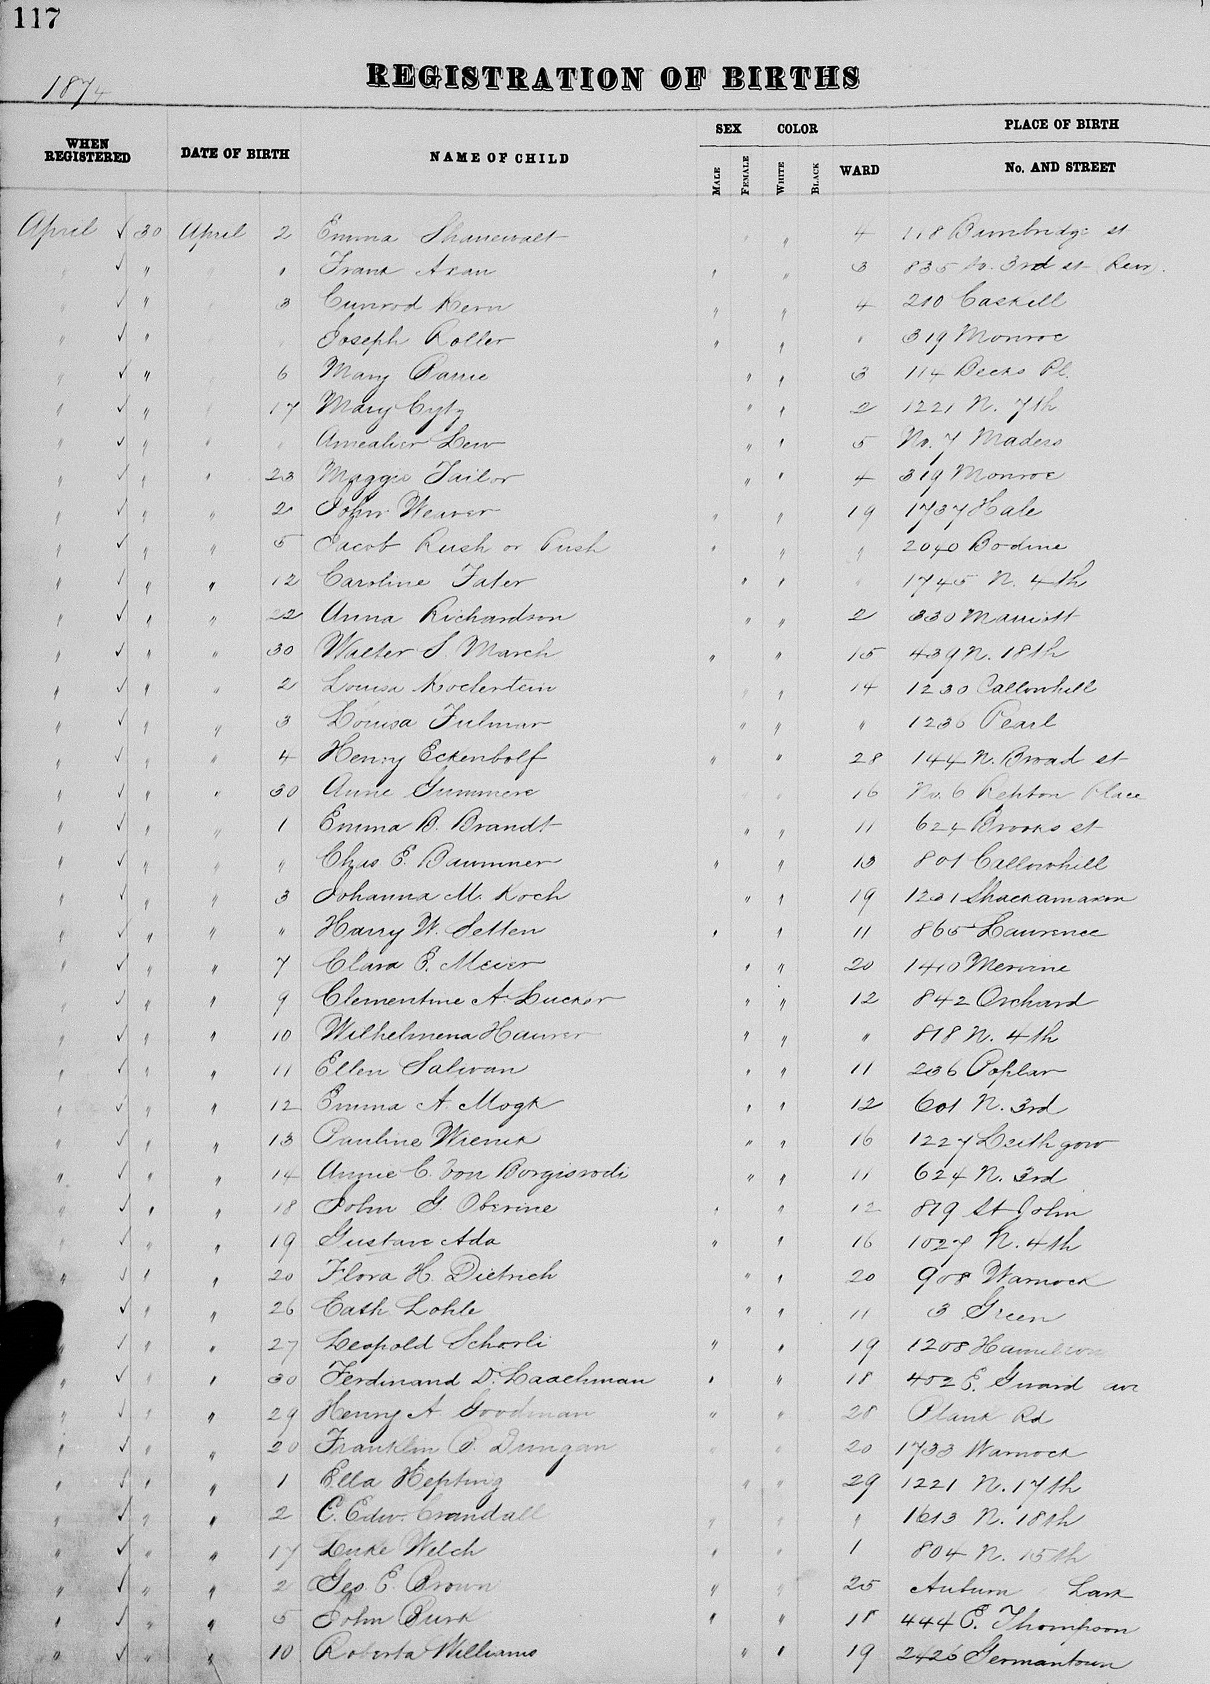 117
1874
REGISTRATION OF BIRTHS
WHEN REGISTERED DATE OF BIRTH NAME OF CHILD SEX COLOR WARD PLACE OF BIRTH
MALE FEMALE WHITE BLACK No. AND STREET
April ✓ 30 April 2 Emma Shanewalt " " 4 118 Bainbridge st
" ✓ " " " Frank " " 3 835 So. 3rd st (Rear).
" ✓ " " 3 Cunrod Kern " " 4 210 Gaskill
" ✓ " " " Joseph Roller " " " 319 Monroe
" ✓ " " 6 Mary " " 3 114 Becks Pl.
" ✓ " " 17 Mary " " 2 1221 N. 7th
" ✓ " " " Lew " " 5 No. 7 Maders
" ✓ " " 23 Maggie Tailor " " 4 319 Monroe
" ✓ " " 2 John Weaver " " 19 1737 Hale
" ✓ " " 5 Jacob Rush or Push " " " 2040 Bodine
" ✓ " " 12 Caroline Fater " " " 1745 N. 4th
" ✓ " " 22 Anna Richardson " " 2 330 Marriott
" ✓ " " 30 Walter S March " " 15 439 N. 18th
" ✓ " " 2 Louisa " " 14 1230 Callowhill
" ✓ " " 3 Louisa Fulmar " " " 1236 Pearl
" ✓ " " 4 Henry Eckenbolf " " 28 144 N. Broad st
" ✓ " " 30 Anne Gummere 16 No. 6 Place
" ✓ " " 1 Emma B. Brandt " " 11 624 Brooks st
" ✓ " " " Chas E. Baummer " " 13 801 Callowhill
" ✓ " " 3 Johanna M. Koch " " 19 1231 Shackamaxon
" ✓ " " " Harry W. Setten " " 11 865 Laurence
" ✓ " " 7 Clara E. Meier " " 20 1410 Mervine
" ✓ " " 9 Clementine A Lucker " " 12 842 Orchard
" ✓ " " 10 Wilhelmena Haurer " " " 818 N. 4th
" ✓ " " 11 Ellen Salivan " " 11 236 Poplar
" ✓ " " 12 Emma A. Mogk " " 12 601 N. 3rd
" ✓ " " 13 Pauline " " 16 1227 Leithgow
" ✓ " " 14 Annie C. Von Borgisrodi " " 11 624 N. 3rd
" ✓ " " 18 John G. Oberine " " 12 819 St John
" ✓ " " 19 Gustave Ada " " 16 1027 N. 4th
" ✓ " " 20 Flora H. Dietrich " " 20 908 Warnock
" ✓ " " 26 Cath Lohle " " 11 3 Green
" ✓ " " 27 Leopold Schorli " " 19 1208 Hamilton
" ✓ " " 30 Ferdinand D. Laachman " " 18 402 E. Guard ave
" ✓ " " 29 Henry A Goodman " " 28 Plank Rd
" ✓ " " 20 Franklin P. Dungan " " 20 1733 Warnock
" ✓ " " 1 Ella Hepting " " 29 1221 N. 17th
" ✓ " " 2 C. Edw. Crandall " " " 1613 N. 18th
" ✓ " " 17 Luke Welch " " 1 804 N. 15th
" ✓ " " 2 Geo. E. Brown " " 25 Auburn
" ✓ " " 5 John Burk " " 18 444 E. Thompson
" ✓ " " 10 Roberta Williams " " 19 2426 Germantown